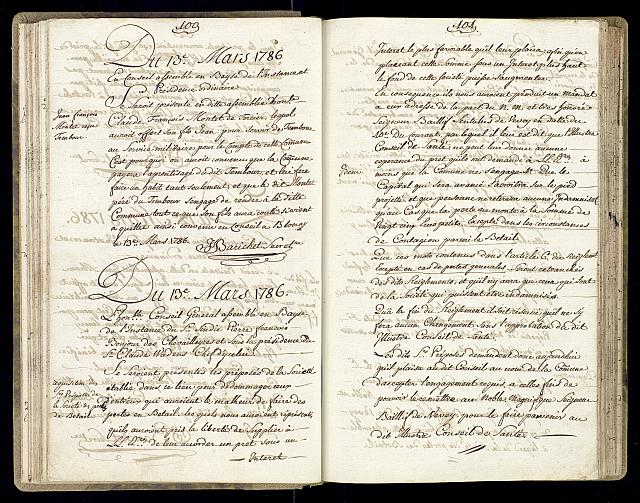 100
Du 13e. Mars 1786
En Conseil assemblé en Bayse de l'instance et
Présidence ordinaire
Jean françois
Montet reçu
Tambour
Se seroit présenté en dite assemblée
François Montet de lequel
auroit offert son fils Jean pour servir de Tambour
au Service militaire pour le Compte de cette Commune
C'est pourquoi on auroit convenu que la Commune
payera l'aprentissage du dit Tambour, et lui fera
faire un habit tant seulement, et que le dit Montet
père du Tambour s'engage de rendre à la dite
Commune tout ce que son fils aura couté s'il vient
à quitter ainsi convenu en Conseil à Blonay
ce 13e. Mars 1786.
Du 13e. Mars 1786.
L'honble. Conseil Général assemblé en Bayse
de l'Instance du Sr. Pierre François
Bonjour des Chevalleyres et sous la présidence du
Sr. Claude
requisition des
Srs. Préposés de
la Société des pertes
de Betail
Se seroient présentés les préposés de la Société
établie dans ce lieu pour dédommager ceux
qui auroient le malheur de faire des
pertes en Betail, lesquels nous auroient représenté
qu'ils auroient pris la liberté de Supplier à
LL. EE. de leur accorder un pret sous un
Interet
101
Interet le plus favorable qu'il leur plaira, afin qu'en
plaçant cette Somme sous un Interet plus haut
le fond de cette société puisse s'augmenter.
En consequence ils nous auroient produit un Mandat
à eux adressé de la part du n. m. et très honoré
Seigneur Baillif de Vevey en datte du
du Courant, par lequel il leur est dit que l'Illustre
Conseil de Santé ne peut leur donner aucune
esperance du pret qu'ils ont demandé à LL. EE. à
moins que la Commune ne s'engage Que le
Capital qui sera avancé s'accroitre sur le pied
projetté et que personne ne retirera aucune Indemnité
qu'au Cas que la perte se monte à la somme de
Vingt cinq Ecus petits, Excepté dans les circonstances
de Contagion parmi le Betail.
Que ces mots contenus dans l'article 6. des Reglemens
Excepté en cas de pertes generales, seront retranchés
des dits Reglements, et qu'il n'y aura que ceux qui sont
de la Société qui puissent etre indemnisés.
Qu'à la fin du Reglement il soit réservé qu'il ne s'y
fera aucun Changement sans l'approbation du dit
Illustre Conseil de Santé.
Les dits Srs. Préposés demandent donc aujourdhui
qu'il plaise au dit Conseil au nom de la Comune
d'accepter l'engagement requis, à celles fins de
pouvoir le remettre au Noble, Magnifique Seigneur
Baillif de Vevey, pour le faire parvenir au
dit Illustre Conseil de Santé.